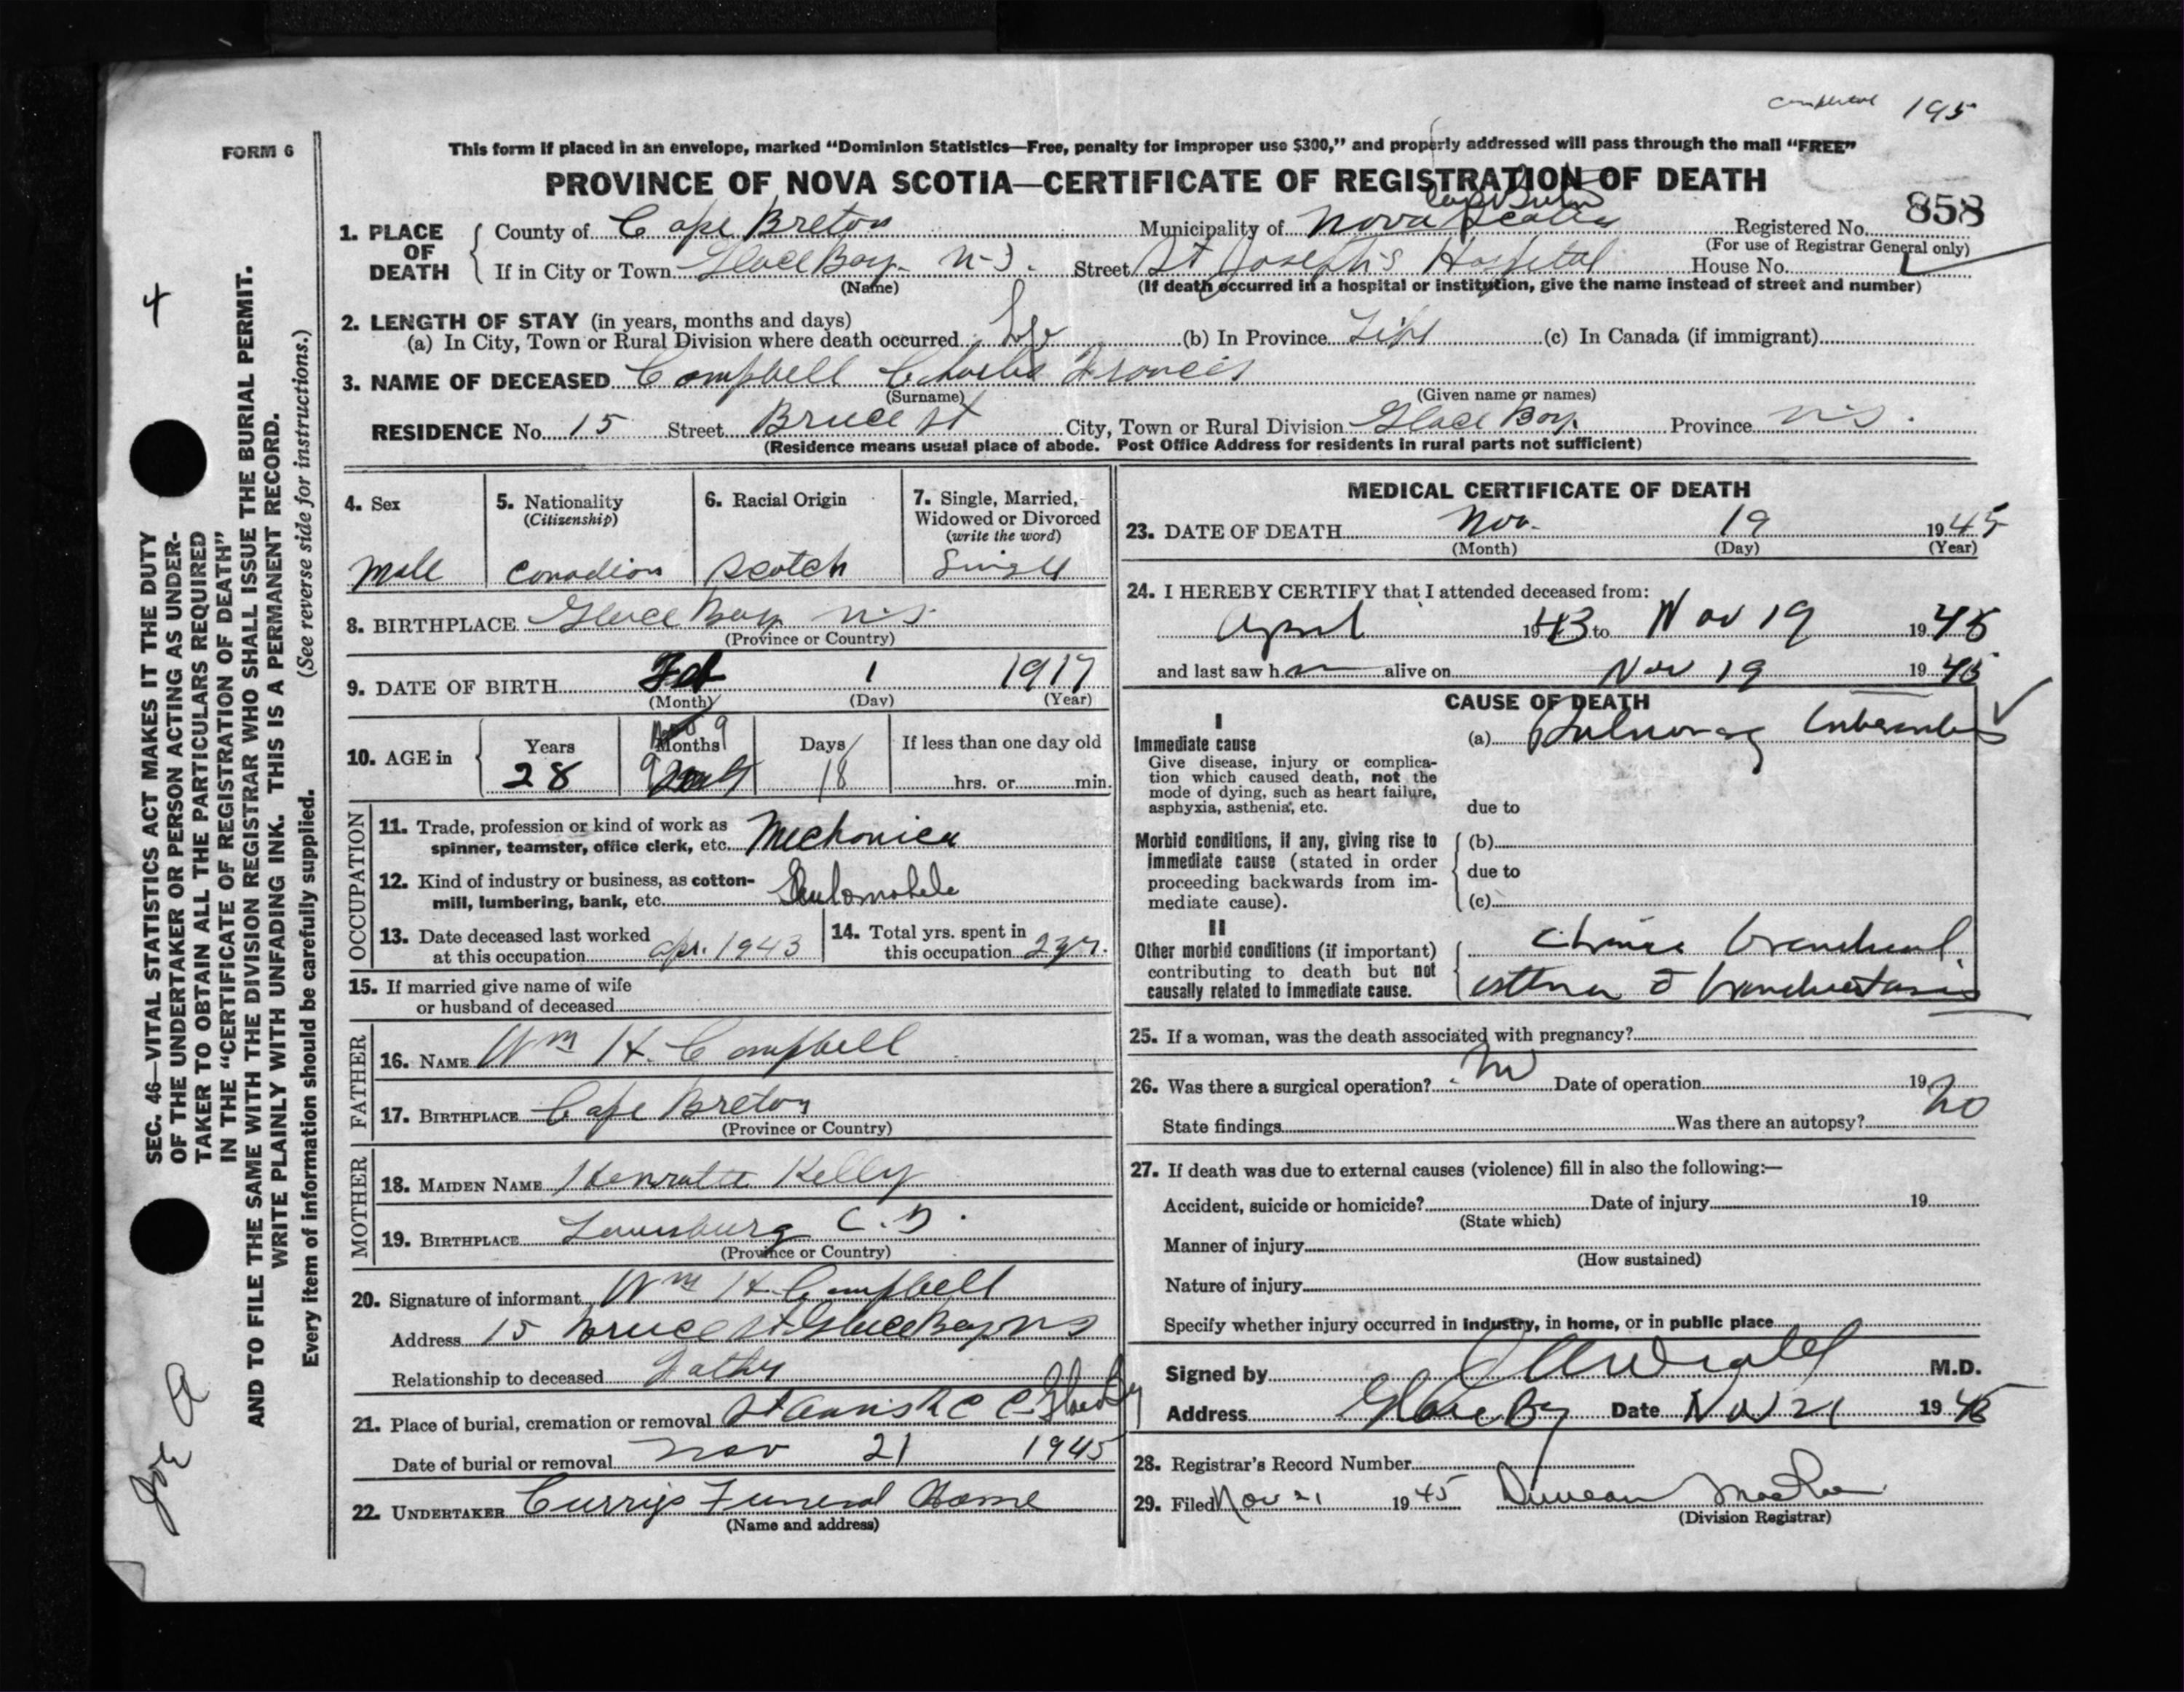 195
FORM 6
This form if placed in an envelope, marked “Dominion Statistics—Free, penalty for improper use $300,” and properly addressed will pass through the mail “FREE”
PROVINCE OF NOVA SCOTIA—CERTIFICATE OF REGISTRATION OF DEATH
858
1. PLACE OF DEATH
County of Cape Breton Municipality of Nova Scotia Cape Breton Registered No.
(For use of Registrar General only)
If in City or Town Glace Bay N-S. Street St Joseph's Hospital House No.
(Name) (If death occurred in a hospital or institution, give the name instead of street and number)
2. LENGTH OF STAY (in years, months and days)
(a) In City, Town or Rural Division where death occurred (b) In Province Life (c) In Canada (if immigrant)
3. NAME OF DECEASED Campbell Charles Francis
(Surname) (Given name or names)
RESIDENCE No. 15 Street Bruce st City, Town or Rural Division Glace Bay. Province N.S.
(Residence means usual place of abode. Post Office Address for residents in rural parts not sufficient)
4. Sex
Male
5. Nationality
(Citizenship)
Canadian
6. Racial Origin
Scotch
7. Single, Married, Widowed or Divorced
(write the word)
Single
8. BIRTHPLACE Glace Bay N.S.
(Province or Country)
9. DATE OF BIRTH Feb 1 1917
(Month) (Day) (Year)
10. AGE in
Years 28
Months 9
9
Days 18
If less than one day old
hrs. or min.
OCCUPATION
11. Trade, profession or kind of work as
spinner, teamster, office clerk, etc. Mechanica
12. Kind of industry or business, as cotton-
mill, lumbering, bank, etc. Automobile
13. Date deceased last worked
at this occupation Apr. 1943
14. Total yrs. spent in
this occupation 2 yr.
15. If married give name of wife
or husband of deceased
FATHER
16. NAME Wm H. Campbell
17. BIRTHPLACE Cape Breton
(Province or Country)
MOTHER
18. MAIDEN NAME Henratta Kelly
19. BIRTHPLACE Louisburg C.B.
(Province or Country)
20. Signature of informant Wm H. Campbell
Address 15 Bruce st Glace Bay NS
Relationship to deceased Father
21. Place of burial, cremation or removal St Anns R C C Glace By
Date of burial or removal Nov 21 1945
22. UNDERTAKER Currys Funeral Home
(Name and address)
MEDICAL CERTIFICATE OF DEATH
23. DATE OF DEATH Nov. 19 1945
(Month) (Day) (Year)
24. I HEREBY CERTIFY that I attended deceased from:
April 1943 to Nov 19 1945
and last saw h alive on Nov 19 1945
CAUSE OF DEATH
I
Immediate cause
Give disease, injury or complica-
tion which caused death, not the
mode of dying, such as heart failure,
asphyxia, asthenia, etc.
(a) Pulmonary tuberculosis
due to
Morbid conditions, if any, giving rise to
immediate cause (stated in order
proceeding backwards from im-
mediate cause).
(b)
due to
(c)
II
Other morbid conditions (if important)
contributing to death but not
causally related to immediate cause.
Chronic bronchial
asthma c̄ bronchiectasis
25. If a woman, was the death associated with pregnancy?
26. Was there a surgical operation? No Date of operation 19
State findings Was there an autopsy? No
27. If death was due to external causes (violence) fill in also the following:—
Accident, suicide or homicide? Date of injury 19
(State which)
Manner of injury
(How sustained)
Nature of injury
Specify whether injury occurred in industry, in home, or in public place
Signed by M.D.
Address Glace By Date Nov 21 1945
28. Registrar's Record Number
29. Filed Nov 21 1945 Duncan MacRae
(Division Registrar)
4
SEC. 46—VITAL STATISTICS ACT MAKES IT THE DUTY
OF THE UNDERTAKER OR PERSON ACTING AS UNDER-
TAKER TO OBTAIN ALL THE PARTICULARS REQUIRED
IN THE “CERTIFICATE OF REGISTRATION OF DEATH”
AND TO FILE THE SAME WITH THE DIVISION REGISTRAR WHO SHALL ISSUE THE BURIAL PERMIT.
WRITE PLAINLY WITH UNFADING INK. THIS IS A PERMANENT RECORD.
Every item of information should be carefully supplied. (See reverse side for instructions.)